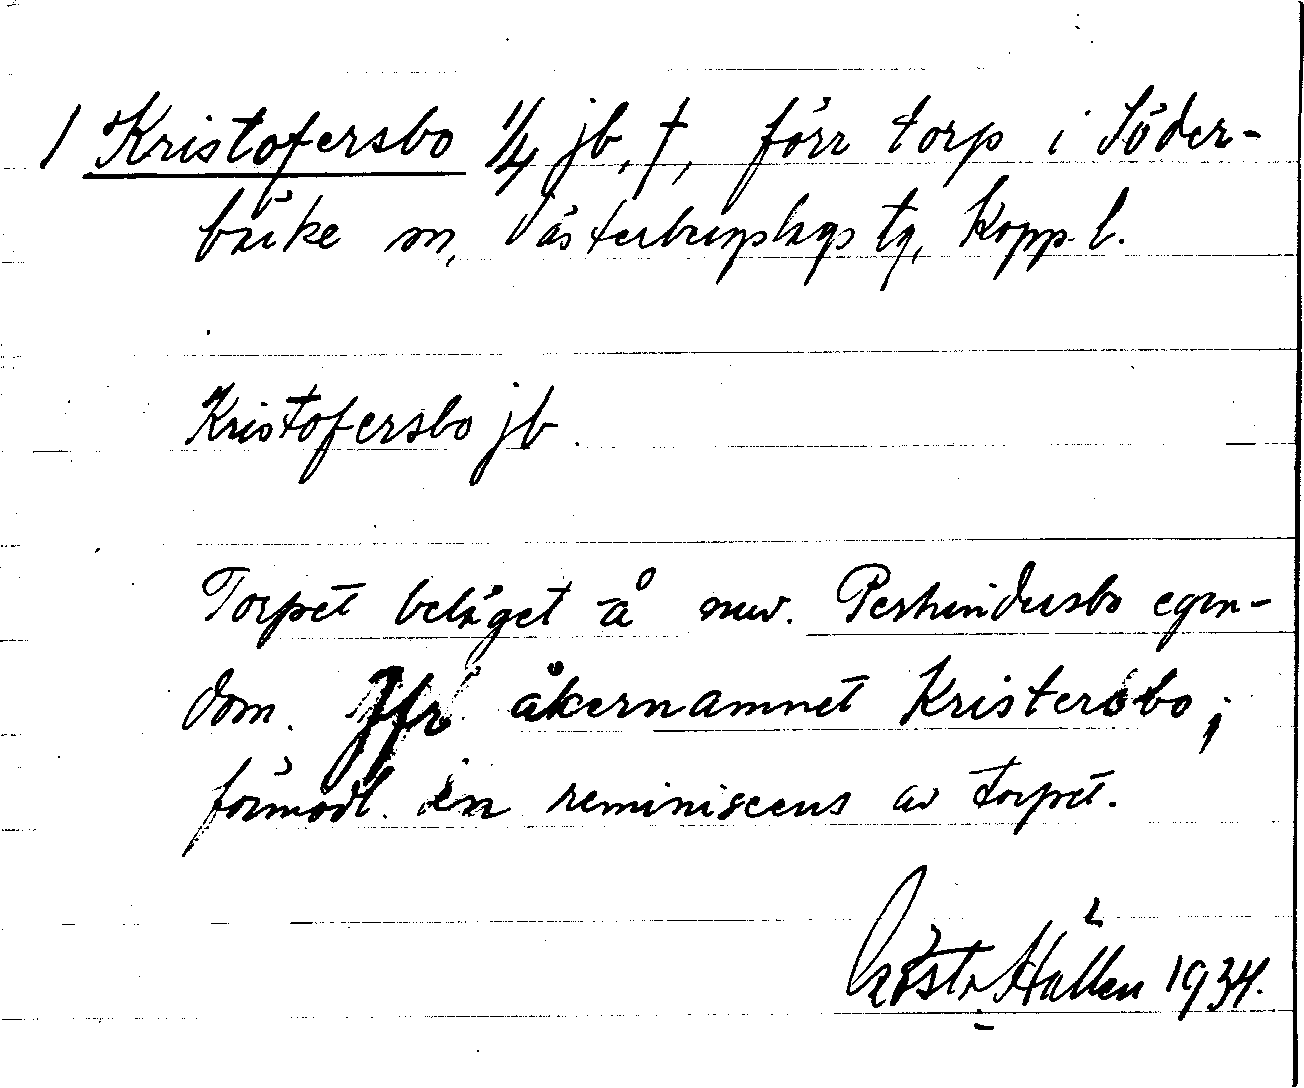 1 Kristofersbo 1/4 jb, †, förr torp i Söder-
bärke sn, Västerbergslags tg, Kopp. l.
Kristofersbo jb
Torpet beläget å nuv. Pershindersbo egen-
dom. Jfr åkernamnet Kristersbo;
förmodl. en reminiscens av torpet.
Gösta Hållen 1934.